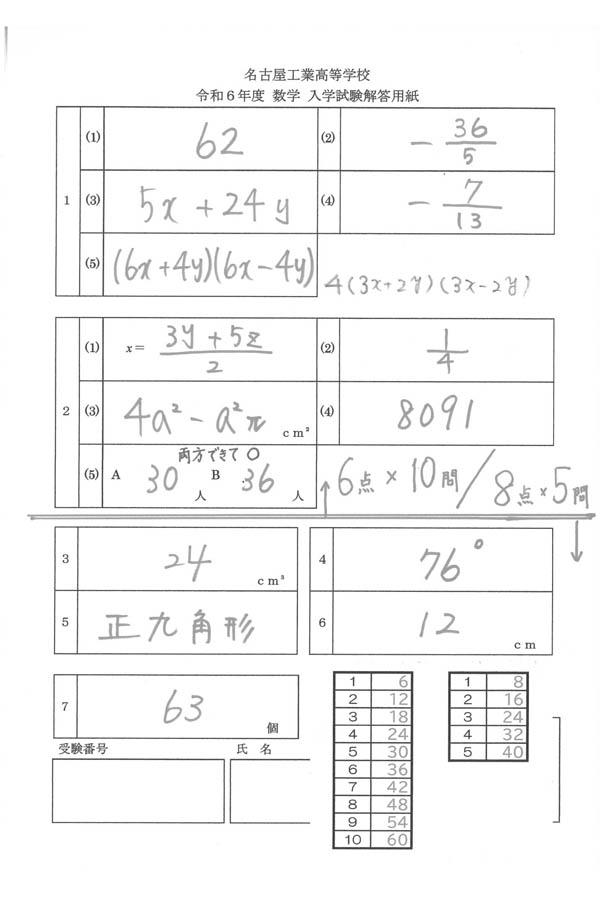 名古屋工業高等学校
令和6年度 数学 入学試験解答用紙
1
(1) 62
(2) -36/5
(3) 5x + 24y
(4) -7/13
(5) (6x+4y)(6x-4y)
4(3x+2y)(3x-2y)
2
(1) x= (3y+5z)/2
(2) 1/4
(3) 4a²-a²π cm²
(4) 8091
両方できて○
(5) A 30人 B 36人
↑6点×10問/8点×5問↓
3 24 cm³
4 76°
5 正九角形
6 12 cm
7 63 個
受験番号
氏 名
1 6
2 12
3 18
4 24
5 30
6 36
7 42
8 48
9 54
10 60
1 8
2 16
3 24
4 32
5 40